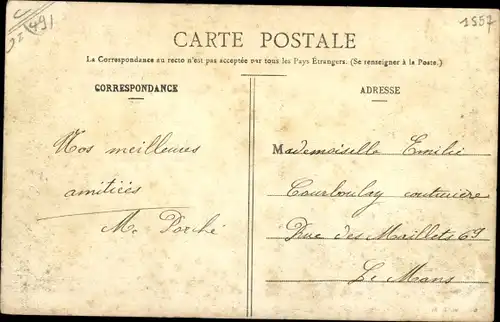 (49)
1857
CARTE POSTALE
La Correspondance au recto n'est pas acceptée par tous les Pays Étrangers. (Se renseigner à la Poste.)
CORRESPONDANCE
Nos meilleures
amitiés
M. Porché
ADRESSE
Mademoiselle Emilie
Courboulay couturière
Rue des Maillets 69
Le Mans